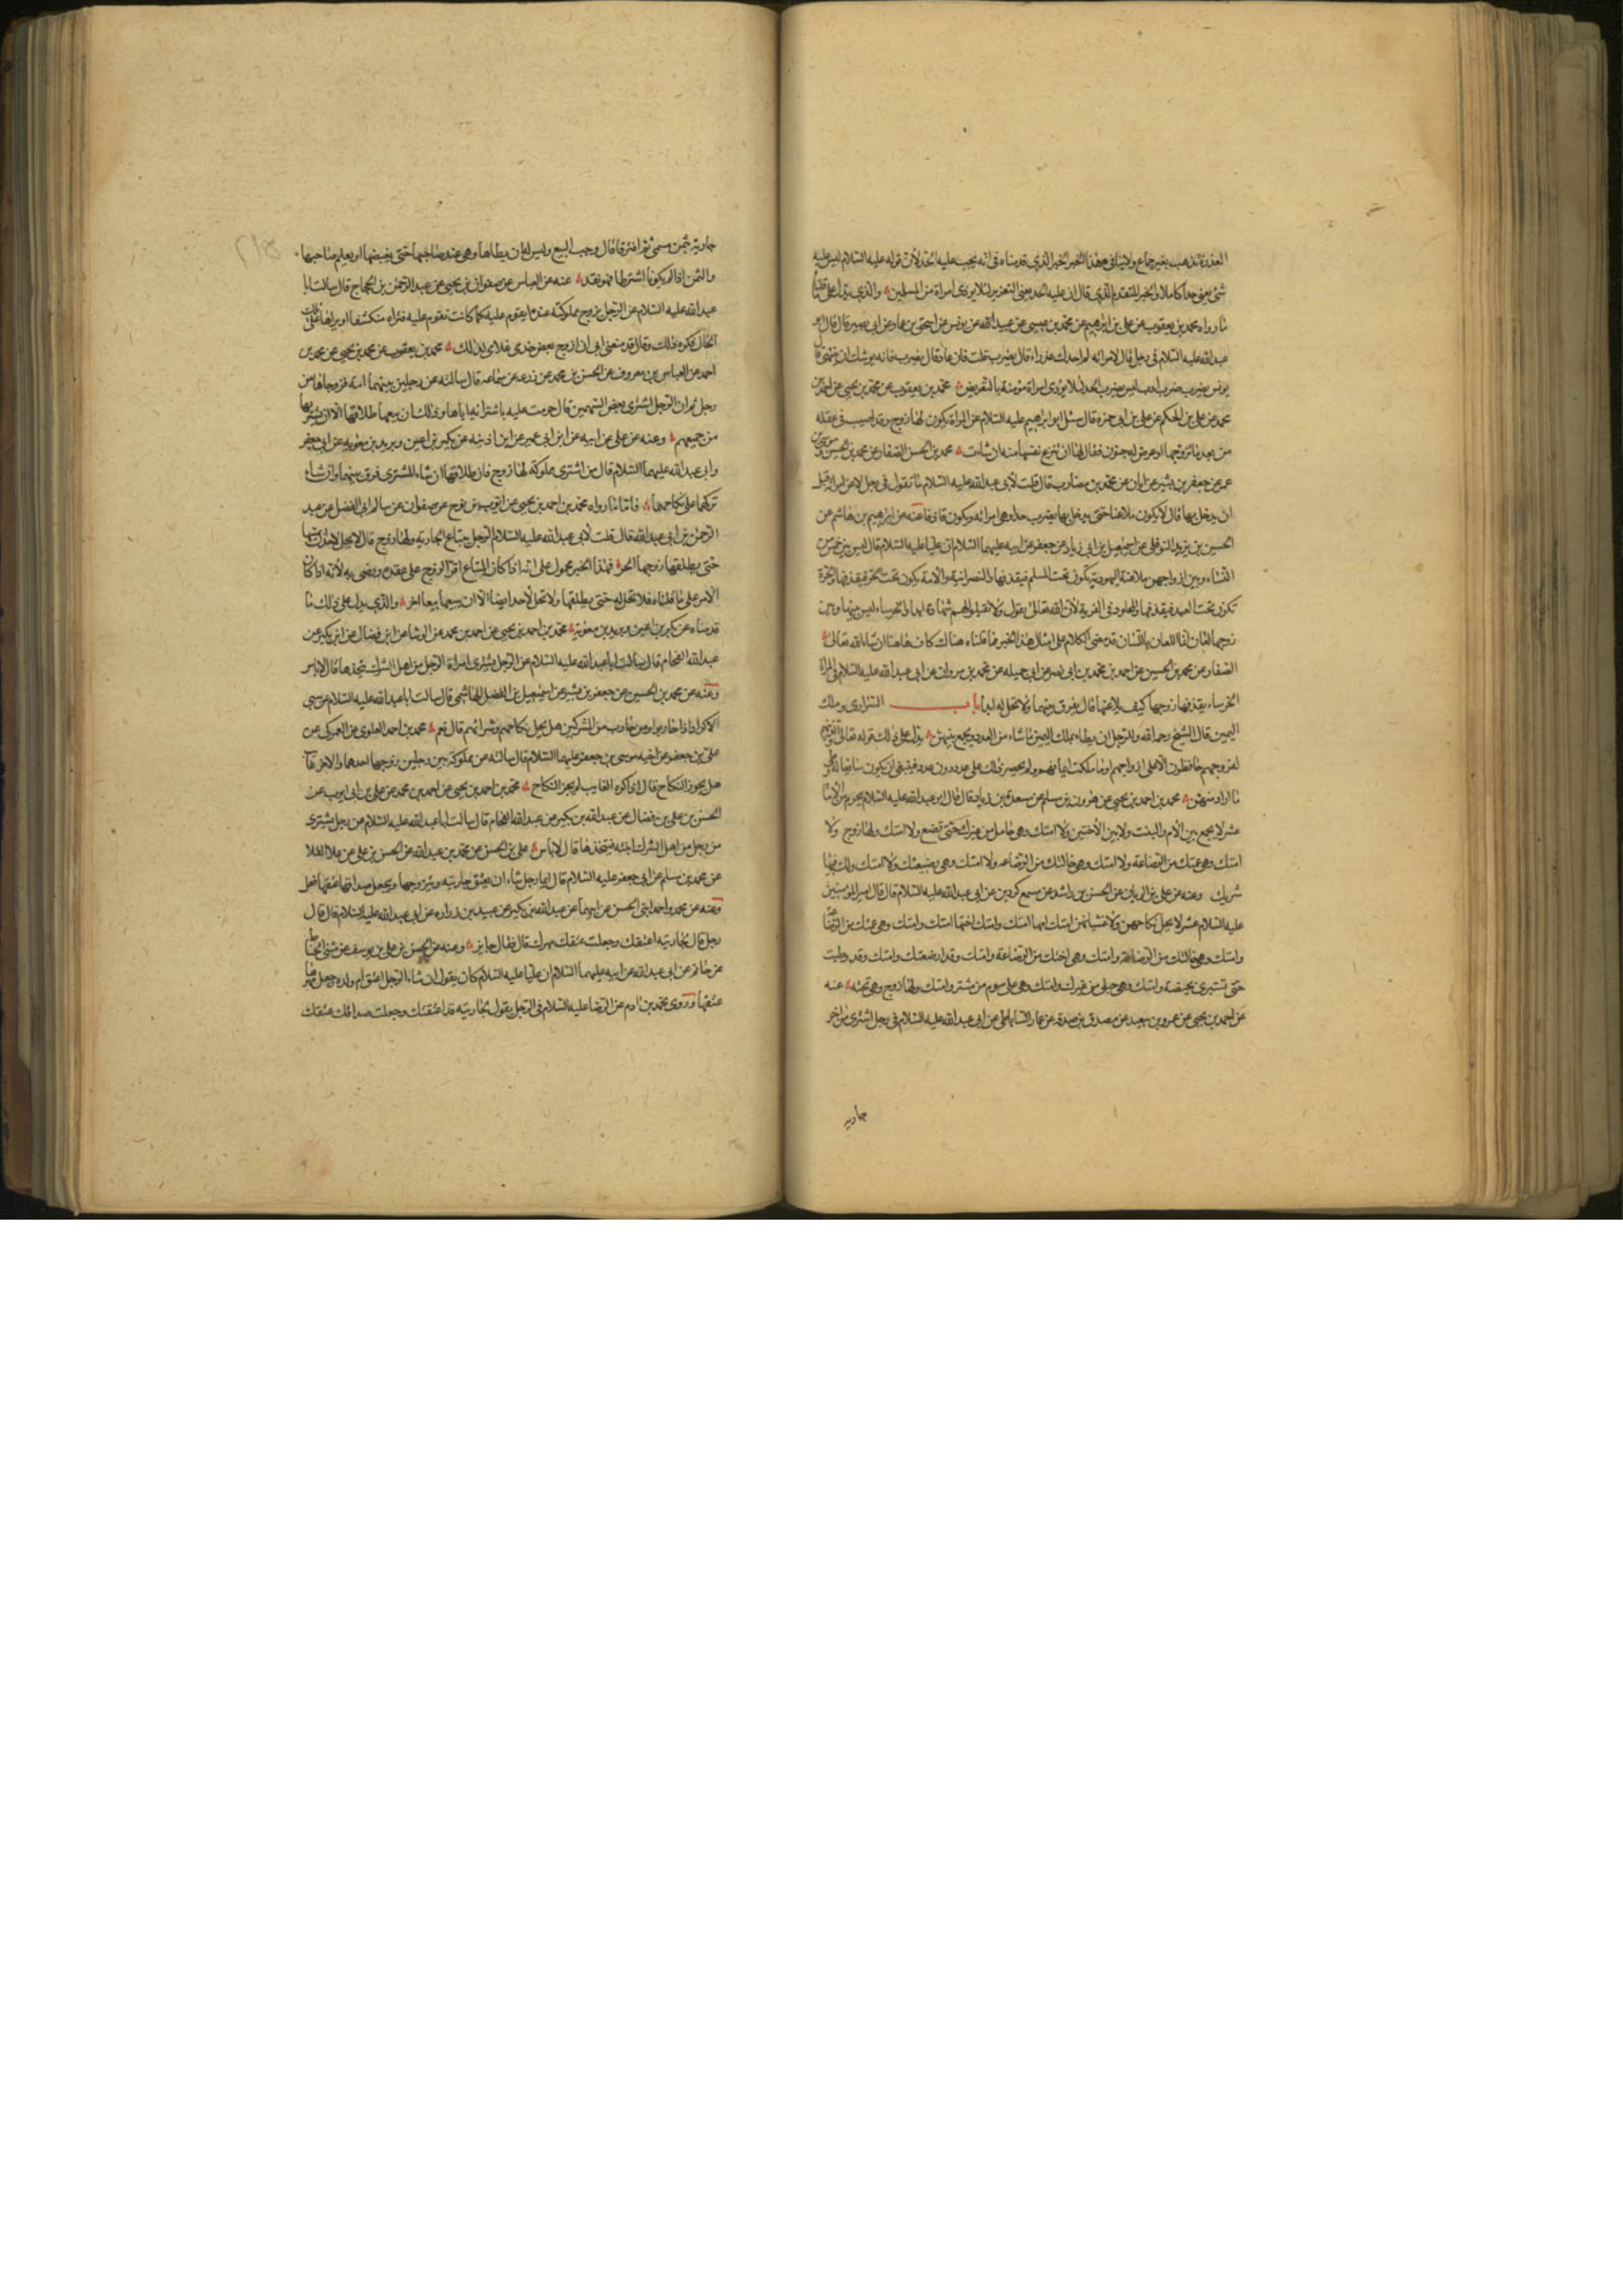 العذرة تذهب بغير جماع ولا ينافى هذا الخبر الخبر الذي قدمناه فى انه يجب عليه الحد لأن قوله عليه السلام ليس عليه
شئ يعنى حدا كاملا والخبر المتقدم الذي قال ان عليه الحد يعنى التعزير لئلا يوذى امراة من المسلمين والذي يدل على ما قلناه
ما رواه محمد بن يعقوب عن على بن ابرهيم عن محمد بن عيسى عن يونس عن اسحق بن عمار عن ابى بصير قال قال ابو
عبد الله عليه السلام فى رجل قال لامراته لم اجدك عذراء قال يضرب قلت فان عاد قال يضرب فانه يوشك ان ينتهى قال
يونس يضرب ضرب ادب ليس يضرب الحد لئلا يوذى امراة مومنة بالتعريض محمد بن يعقوب عن محمد بن يحيى عن احمد بن
محمد عن على بن الحكم عن على بن ابى حمزة قال سئل ابو ابراهيم عليه السلام عن المراة يكون لها زوج وقد اصيب فى عقله
من بعد ما تزوجها او عرض له جنون فقال لها ان تنزع نفسها منه ان شاءت محمد بن الحسن الصفار عن محمد بن الحسين عن موسى بن
عمر عن جعفر بن بشير عن ابان عن محمد بن مضارب قال قلت لأبى عبد الله عليه السلام ما تقول فى رجل لاعن امراته قبل
ان يدخل بها قال لا يكون ملاعنا حتى يدخل بها يضرب حدا وهى امراته ويكون قاذفا عنه عن ابراهيم بن هاشم عن
الحسين بن يزيد النوفلى عن اسمعيل بن ابى زياد عن جعفر عن ابيه عليهما السلام ان عليا عليه السلام قال ليس بين خمس من
النساء وبين ازواجهن ملاعنة اليهودية تكون تحت المسلم فيقذفها والنصرانية والامة يكون تحت الحر فيقذفها والحرة
تكون تحت العبد فيقذفها والمجلود فى الفرية لأن الله تعالى يقول ولا تقبلوا لهم شهادة ابدا والخرساء ليس بينها وبين
زوجها لعان انما اللعان باللسان قد مضى الكلام على امثال هذا الخبر فما قلناه هناك كاف هاهنا ان شاء الله تعالى
الصفار عن محمد بن الحسين عن احمد بن محمد بن ابى نصر عن ابى جميله عن محمد بن مروان عن ابى عبد الله عليه السلام فى المراة
الخرساء يقذفها زوجها كيف يلاعنها قال يفرق بينهما ولا تحل له ابدا باب السرارى وملك
اليمين قال الشيخ رحمه الله وللرجل ان يطاء بملك اليمين ما شاء من العدد ويجمع بينهن يدل على ذلك قوله تعالى والذين هم
لفروجهم حافظون الا على ازواجهم او ما ملكت ايمانهم ولم يحصر ذلك على عدد دون عدد فينبغى ان يكون سائغا له
ما اراد منهن محمد بن احمد بن يحيى عن هرون بن مسلم عن مسعدة بن زياد قال قال ابو عبد الله عليه السلام يحرم من الاماء
عشر لا يجمع بين الأم والبنت ولا بين الأختين ولا امتك وهى حامل من غيرك حتى تضع ولا امتك ولها زوج ولا
امتك وهى عمتك من الرضاعة ولا امتك وهى خالتك من الرضاعه ولا امتك وهى رضيعتك ولا امتك ولك فيها
شريك وعنه عن على بن الريان عن الحسن بن راشد عن مسمع كردين عن ابى عبد الله عليه السلام قال قال امير المومنين
عليه السلام عشر لا يحل نكاحهن ولا غشيانهن امتك امها امتك وامتك اختها امتك وامتك وهى عمتك من الرضاعة
وامتك وهى خالتك من الرضاعة وامتك وهى اختك من الرضاعة وامتك وقد ارضعتك وامتك وقد وطيت
حتى تستبرئ بحيضة وامتك وهى حبلى من غيرك وامتك وهى على سوم من مشتر وامتك ولها زوج وهى تحته عنه
عن احمد بن يحيى عن عمرو بن سعيد عن مصدق بن صدقه عن عمار الساباطى عن ابى عبد الله عليه السلام فى رجل اشترى من اخر
جاريه
جارية بثمن مسمى ثم افترقا قال وجب البيع وليس له ان يطاها وهى عند صاحبها حتى يقبضها او يعلم صاحبها
والثمن اذا لم يكونا اشترطا فهو نقد عنه عن العباس عن صفوان بن يحيى عن عبد الرحمن بن الحجاج قال سالت ابا
عبد الله عليه السلام عن الرجل يزوج مملوكته عبده ايقوم عليه كما كانت تقوم عليه فتراه منكشفا او يراها على تلك
الحال فكره ذلك وقال قد منعنى ابى ان ازوج بعض خدمى غلامى لذلك محمد بن يعقوب عن محمد بن يحيى عن محمد بن
احمد عن العباس بن معروف عن الحسن بن محمد عن زرعه عن سماعه قال سالته عن رجلين بينهما امة فزوجاها من
رجل ثم ان الرجل اشترى بعض السهمين قال حرمت عليه باشترائه اياها وذلك ان بيعها طلاقها الا ان يشتريها
من جميعهم وعنه عن على عن ابيه عن ابن ابى عمير عن ابن اذينه عن بكير بن اعين وبريد بن معويه عن ابى جعفر
وابى عبد الله عليهما السلام قال من اشترى مملوكة لها زوج فان طلاقها ان شاء المشترى فرق بينهما وان شاء
تركهما على نكاحهما فاما ما رواه محمد بن احمد بن يحيى عن ايوب بن نوح عن صفوان عن سالم ابى الفضل عن عبد
الرحمن بن ابى عبد الله قال قلت لأبى عبد الله عليه السلام الرجل يبتاع الجارية ولها زوج قال لا يحل لاحد ان يمسها
حتى يطلقها زوجها الحر فهذا الخبر محمول على انه اذا كان المبتاع اقر الزوج على عقده ورضى به لأنه اذا كان
الامر على ما قلناه فلا تحل له حتى يطلقها ولا تحل لأحد ايضا الا ان يبيعها بيعا اخر والذي يدل على ذلك ما
قدمناه عن بكير بن اعين وبريد بن معوية محمد بن احمد بن يحيى عن احمد بن محمد عن الوشا عن ابن فضال عن ابن بكير عن
عبد الله اللحام قال سالت ابا عبد الله عليه السلام عن الرجل يشترى امراة الرجل من اهل الشرك يتخذها قال لا باس
وعنه عن محمد بن الحسين عن جعفر بن بشير عن اسمعيل بن الفضل الهاشمى قال سالت ابا عبد الله عليه السلام عن سبى
الاكراد اذا حاربوا ومن حارب من المشركين هل يحل نكاحهم وشرائهم قال نعم محمد بن احمد العلوى عن العمركى عن
على بن جعفر عن اخيه موسى بن جعفر عليهما السلام قال سالته عن مملوكة بين رجلين زوجها احدهما والاخر غائب
هل يجوز النكاح قال اذا كره الغايب لم يجز النكاح محمد بن احمد بن يحيى عن احمد بن محمد عن على بن ابى ايوب عن
الحسن بن على بن فضال عن عبد الله بن بكير عن عبد الله اللحام قال سالت ابا عبد الله عليه السلام عن رجل يشترى
من رجل من اهل الشرك ابنته فيتخذها قال لا باس على بن الحسن عن محمد بن عبد الله عن الحسن بن على عن علا
عن محمد بن مسلم عن ابى جعفر عليه السلام قال ايما رجل شاء ان يعتق جاريته ويتزوجها ويجعل صداقها عتقها فعل
وعنه عن محمد واحمد ابنى الحسن عن ابيهما عن عبد الله بن بكير عن عبيد بن زراره عن ابى عبد الله عليه السلام قال قال
رجل قال لجاريته اعتقك وجعلت عتقك مهرك قال فقال جايز وعنه عن الحسن بن على بن يوسف عن مثنى الحناط
عن حاتم عن ابى عبد الله عن ابيه عليهما السلام ان عليا عليه السلام كان يقول ان شاء الرجل اعتق ام ولده وجعل مهرها
عتقها وروى محمد بن ادم عن الرضا عليه السلام فى الرجل يقول لجاريته قد اعتقتك وجعلت صداقك عتقك